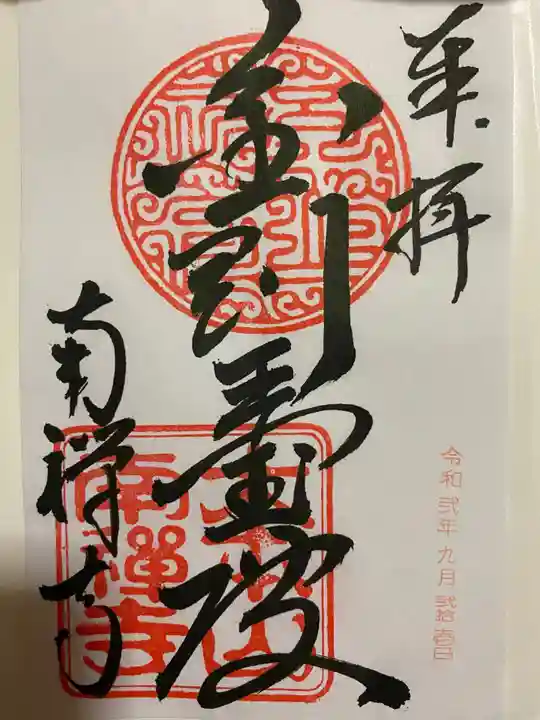 奉拝
金剛王宝殿
南禅寺
大本山
南禅寺
令和弐年九月弐拾壱日